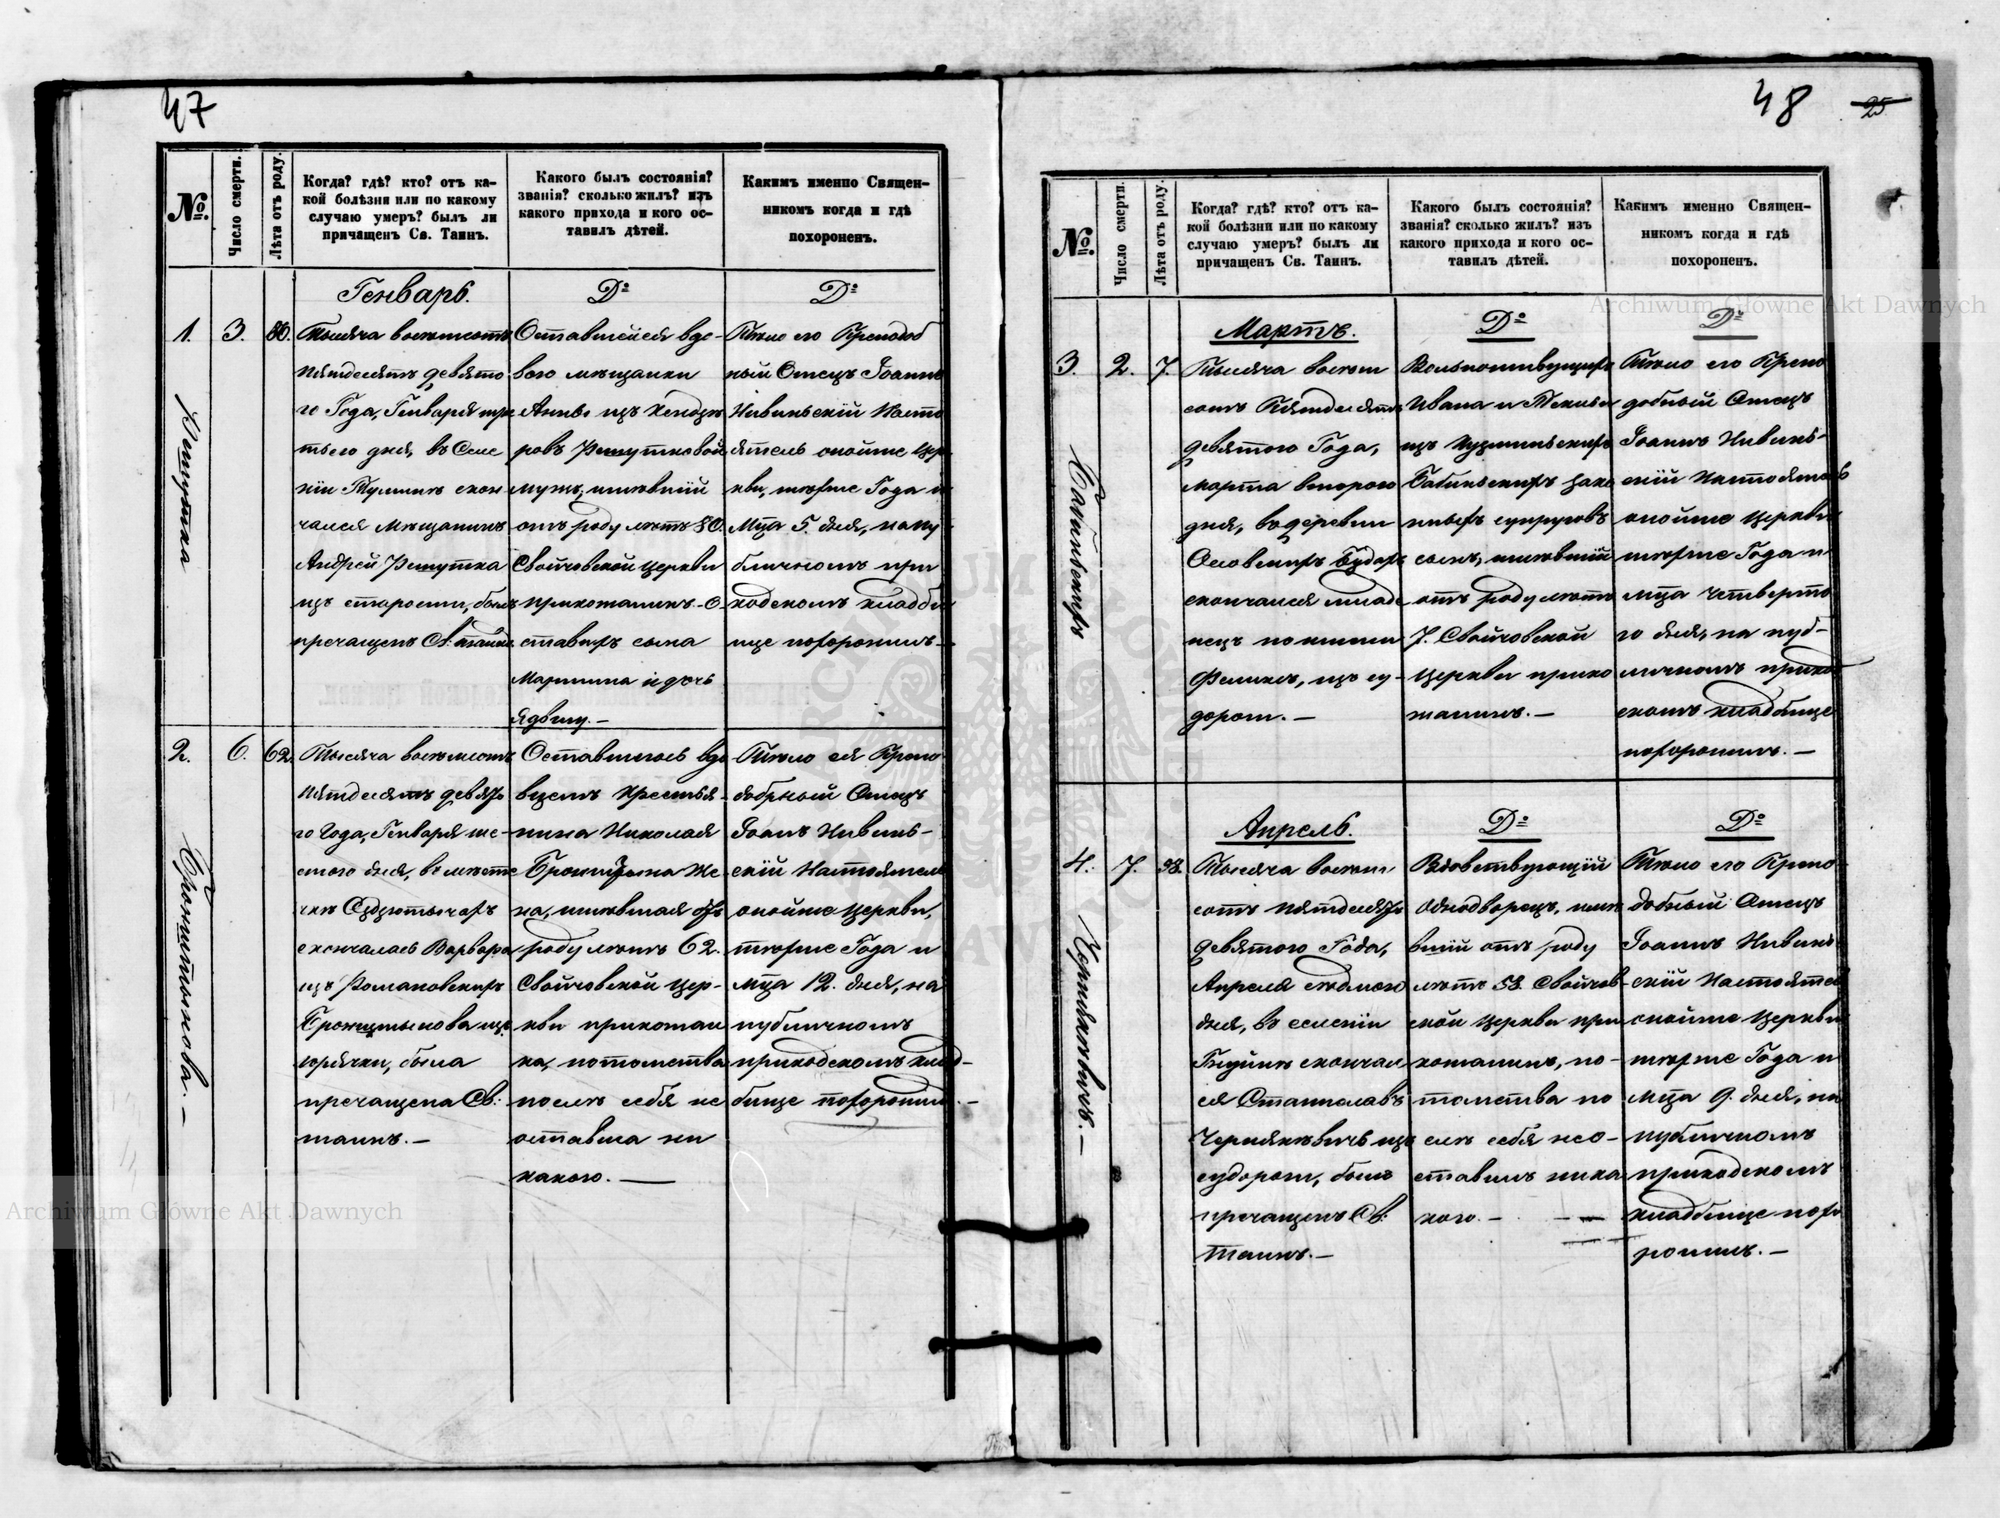 47
№.
Число смерти.
Лѣта отъ роду.
Когда? гдѣ? кто? отъ ка-
кой болѣзни или по какому
случаю умеръ? былъ ли
причащенъ Св. Таинъ.
Какого былъ состоянія?
званія? сколько жилъ? изъ
какого прихода и кого ос-
тавилъ дѣтей.
Какимъ именно Священ-
никомъ когда и гдѣ
похороненъ.
Генварь.
Dº
Dº
1.
3.
80.
Тысяча восемсотъ
пятдесятъ девято
го Года, Генваря тре
тьего дня, въ Селе
скон
чался мѣщанинъ
Андрей
изъ старости, былъ
пречащенъ Св.
Оставшейся вдо-
вою мѣщанки
Анны изъ
мужъ, имѣвшій
отъ роду лѣтъ 80.
Свойчовской церкви
прихожанинъ. О
ставилъ сына
Мартина и дочь
Ядвигу.—
Тѣло его Преподоб
ный Отецъ Іоаннъ
Насто
ятель онойже Цер
кви, тогоже Года и
Мца 5. дня, на пу
бличномъ при
ходскомъ кладби
ще похоронилъ.—
2.
6.
62.
Тысяча восемсотъ
пятдесятъ девято
го Года, Генваря ше-
стого дня, въ мѣсте
чкѣ
скончалась Варвара
изъ Романовскихъ
изъ
горячки, была
пречащена Св:
таинъ.—
Оставшегось вдо
вцемъ крестья-
нина Николая
же
на, имѣвшая отъ
роду лѣтъ 62.
Свойчовской цер-
кви прихожан
ка, потомства
послѣ себя не
оставила ни
какого.—
Тѣло ея Препо
добный Отецъ
Іоаннъ
Настоятель
онойже Церкви,
тогоже Года и
Мца 12. дня, на
публичномъ
приходскомъ клад-
бище похоронилъ.—
48
25
№.
Число смерти.
Лѣта отъ роду.
Когда? гдѣ? кто? отъ ка-
кой болѣзни или по какому
случаю умеръ? былъ ли
причащенъ Св. Таинъ.
Какого былъ состоянія?
званія? сколько жилъ? изъ
какого прихода и кого ос-
тавилъ дѣтей.
Какимъ именно Священ-
никомъ когда и гдѣ
похороненъ.
Мартъ.
Dº
Dº
3.
2.
7.
Тысяча восем
сотъ Пятдесятъ
девятого Года,
Марта второго
дня, въ деревни
скончался младе
нецъ по имени
Феликсъ, изъ су-
дорог.—
Ивана и Теклы
изъ
зако
нныхъ супруговъ
сынъ, имѣвшій
отъ роду лѣтъ
7. Свойчовской
церкви прихо
жанинъ.—
Тѣло его Препо
добный Отецъ
Іоаннъ
Настоятель
онойже Церкви
тогоже Года и
мца четверто
го дня, на пуб-
личномъ приход
скомъ кладбище
похоронилъ.—
Апрель.
Dº
Dº
4.
7.
58.
Тысяча восем
сотъ пятдесятъ
девятого Года,
Апреля седмого
дня, въ селеніи
скончал
ся Станиславъ
Чернякевичъ изъ
судорог, былъ
пречащенъ Св:
Таинъ.—
Вдовствующій
Однодворецъ, имѣ
вшій отъ роду
лѣтъ 58. Свойчов
ской Церкви при
хожанинъ, по-
томства по
слѣ себя нео-
ставилъ ника
кого.—
Тѣло его Препо
добный Отецъ
Іоаннъ
Настоятель
онойже Церкви
тогоже Года и
Мца 9. дня, на
публичномъ
приходскомъ
кладбище похо
ронилъ.—
Черникевичъ.—
Archiwum Główne Akt Dawnych
Archiwum Główne Akt Dawnych